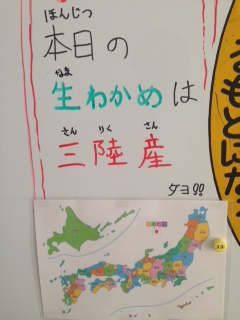 ほんじつ
本日の
なま
生わかめは
さん りく さん
三陸産
ダヨ!!